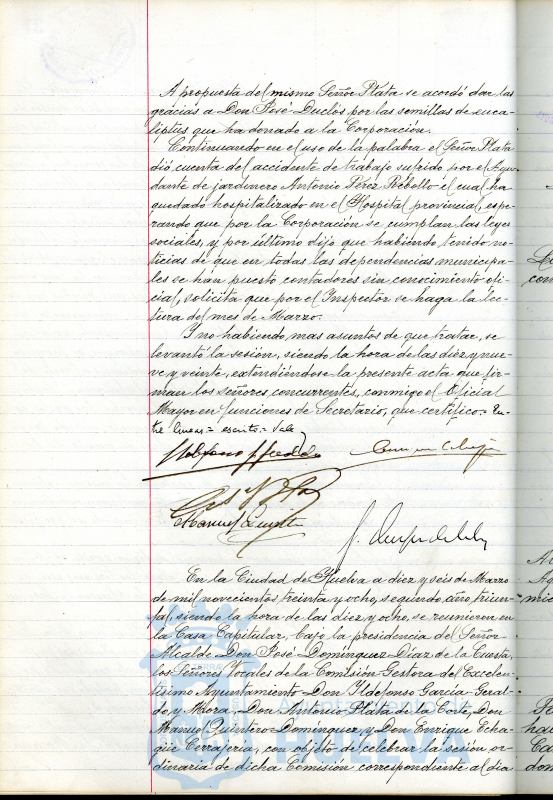 A propuesta del mismo Señor Plata se acordó dar las
gracias a Don José Duclós, por las semillas de euca-
liptus que ha donado a la Corporación.
Continuando en el uso de la palabra el Señor Plata
dió cuenta del accidente de trabajo sufrido por el Ayu-
dante de jardinero Antonio Pérez Rebollo el cual ha
quedado hospitalizado en el Hospital provincial, espe-
rando que por la Corporación se cumplan las leyes
sociales, y por último dijo que habiendo tenido no-
ticias de que en todas las dependencias municipa-
les se han puesto contadores sin conocimiento ofi-
cial, solicita que por el Inspector se haga la lec-
tura del mes de Marzo.
Y no habiendo mas asuntos de que tratar, se
levantó la sesión, siendo la hora de las diez y nue-
ve y veinte, extendiéndose la presente acta que fir-
man los señores concurrentes, conmigo el Oficial
Mayor en funciones de Secretario, que certifico = En-
tre lineas = escrito = Vale
Manuel Quintero
En la Ciudad de Huelva a diez y seis de Marzo
de mil novecientos treinta y ocho, segundo año triun-
fal, siendo la hora de las diez y ocho, se reunieron en
la Casa Capitular, bajo la presidencia del Señor
Alcalde Don José Domínguez Díaz de la Cuesta,
los Señores Vocales de la Comisión Gestora del Excelen-
tísimo Ayuntamiento Don Ildefonso García Geral-
do y Mora, Don Antonio Plata de la Corte, Don
Manuel Quintero Domínguez y Don Enrique Echa-
güe Cerrajeria, con objeto de celebrar la sesión or-
dinaria de dicha Comisión correspondiente al dia
Ayuntamiento de
HUELVA